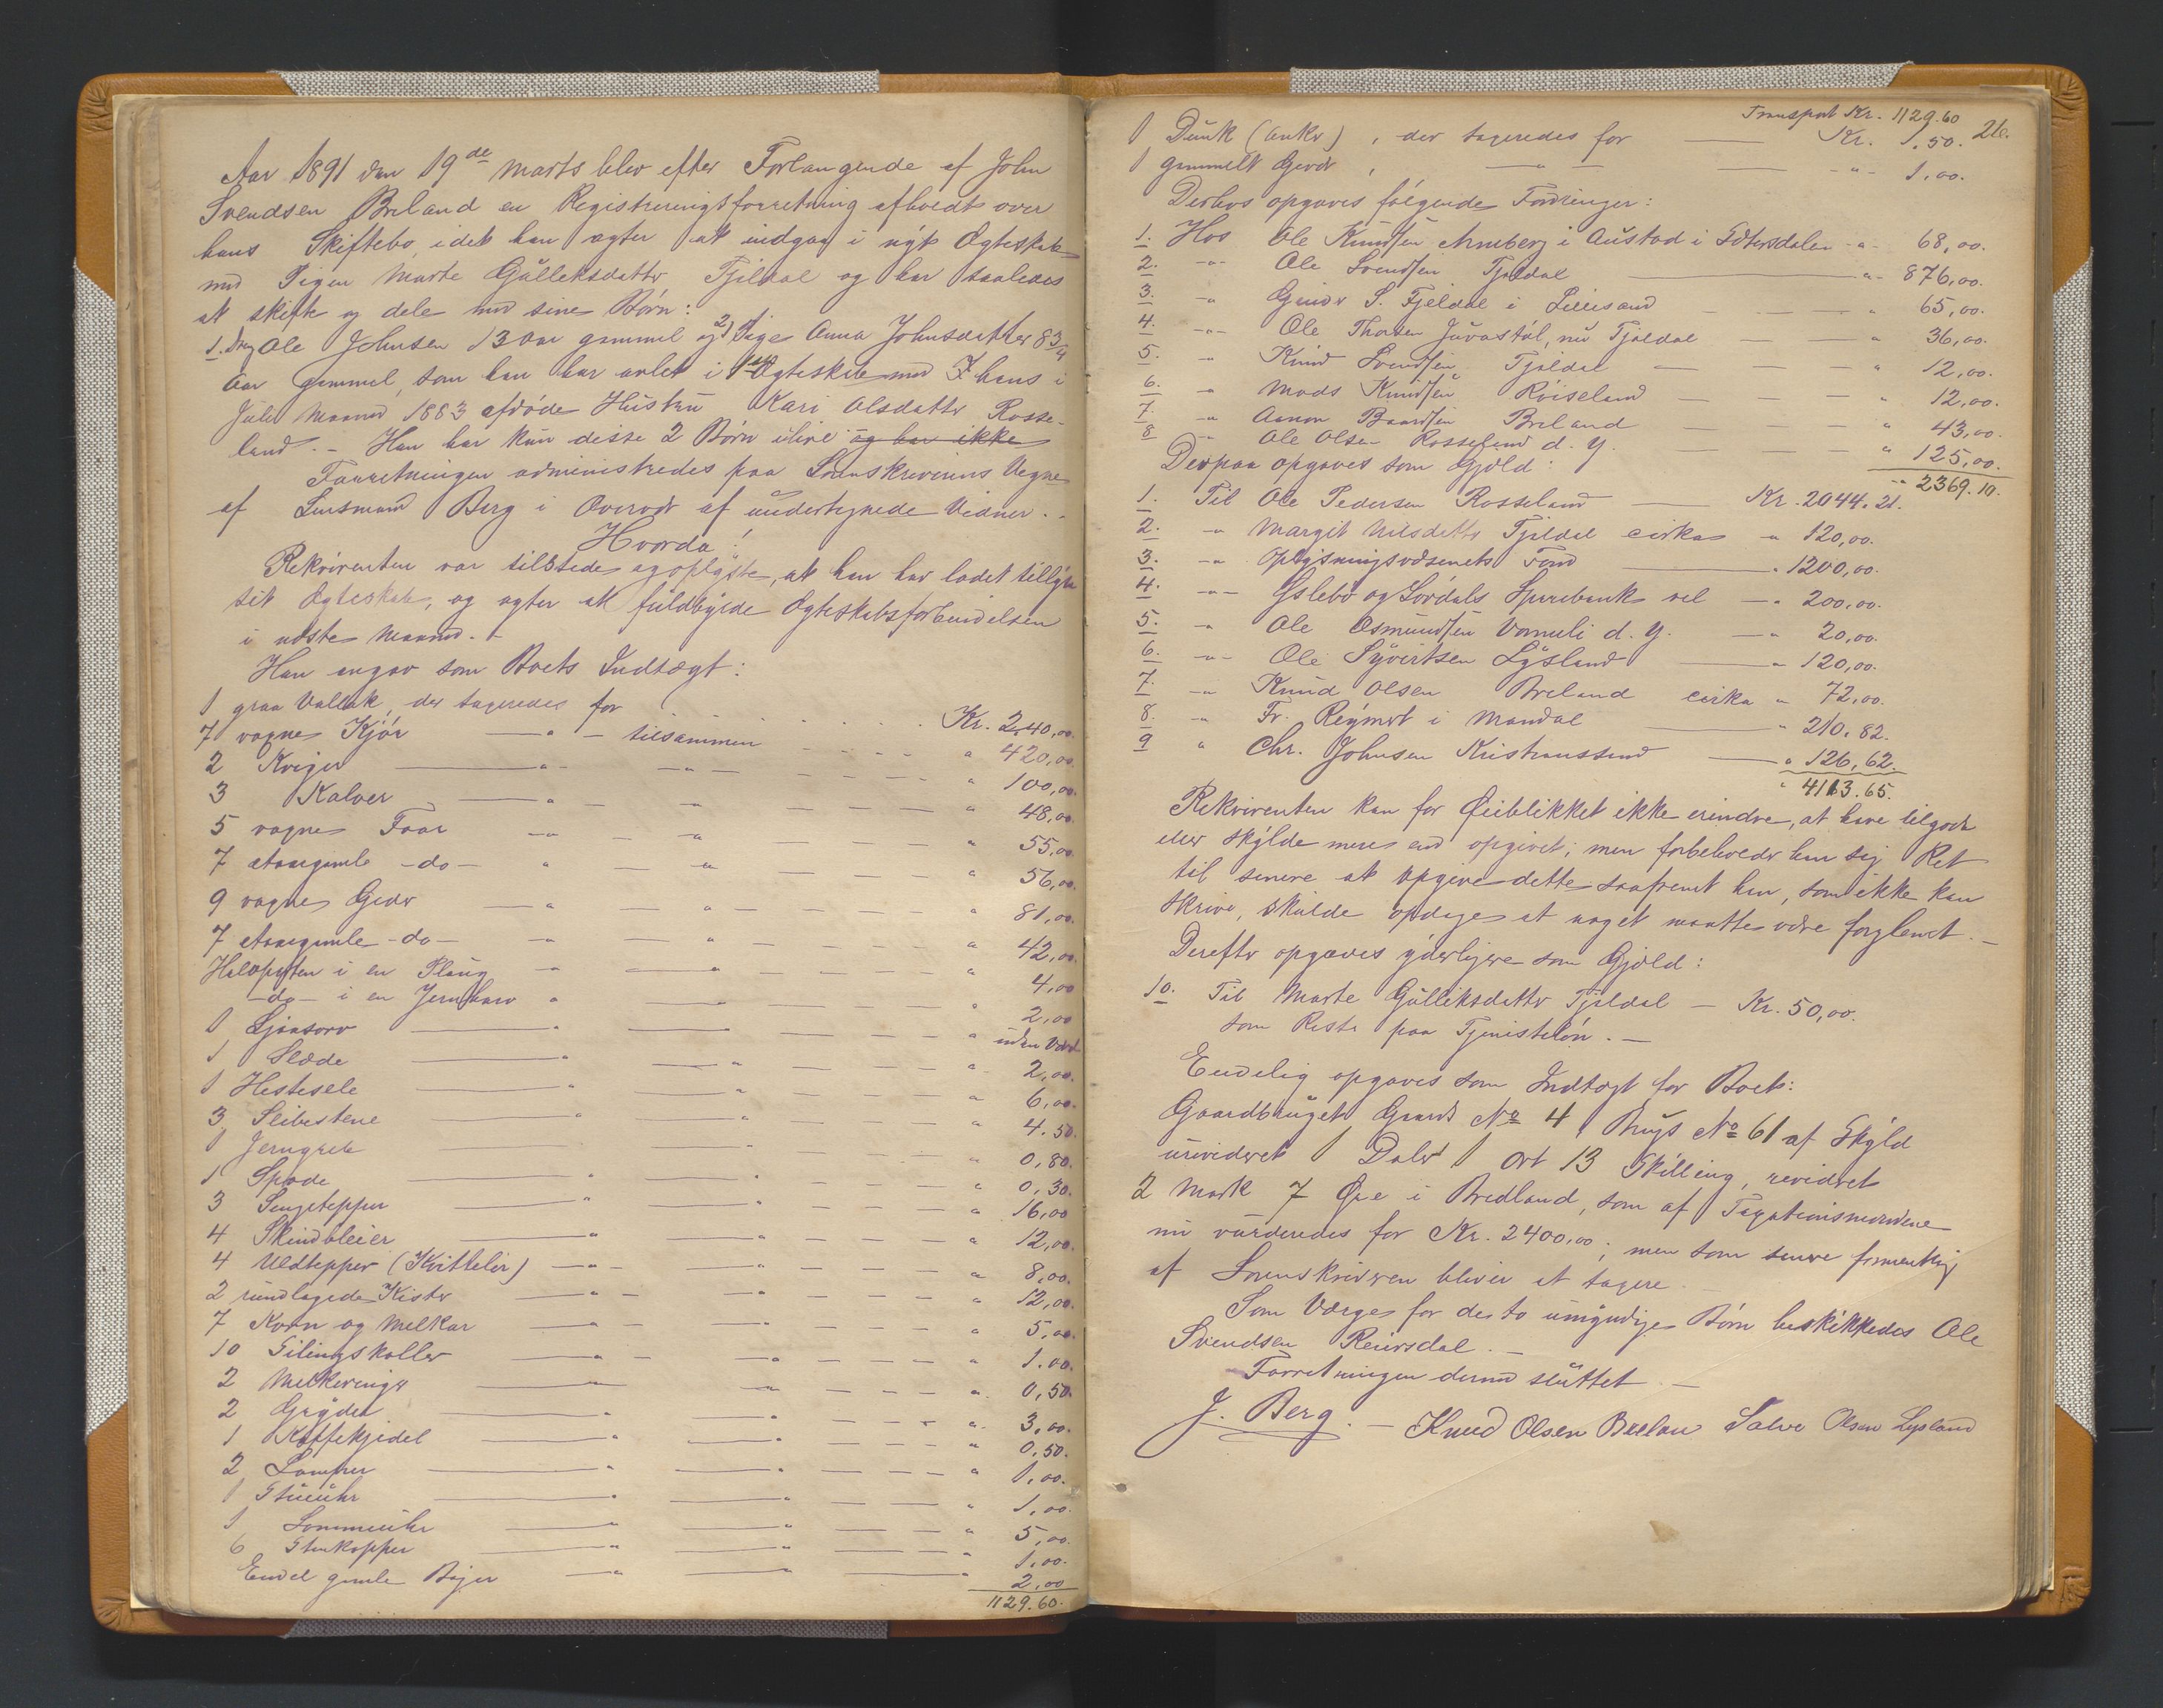 Aar 1891 den 19de Marts blev efter Forlangende af John
Svendsen Breland en Registreringsforretning afholdt over
hans Skiftebo, idet han agter at indgaa i nyt Ægteskab
med Pigen Marte Gulleksdatter Fjeldal og har saaledes
at skifte og dele med sine Børn:
1. Drg Ole Johnsen 13 Aar gammel og 2) Pige Anna Johnsdatter 8 3/4
Aar gammel, som han har avlet i 1ste Ægteskab med hans i
Juli Maaned 1883 afdøde Hustru Kari Olsdatter Rosse-
land. - Han har kun disse 2 Børn ilive og har ikke
Forretningen administredes paa Sorenskriverens Vegne
af Lensmand Berg i Overvær af undertegnede Vidner. -
Hvorda!
Rekvirenten var tilstede og oplyste, at han har ladet tillyse
sit Ægteskab, og agter at fuldbyrde Ægteskabsforbindelsen
i næste Maaned. -
Han angav som Boets Indtægt:
1 graa Vallak, der taxeredes for Kr. 240,00.
7 voxne Kjør - " - tilsammen " 420,00.
2 Kviger - " - " - " 100,00.
3 Kalver - " - " - " 48,00.
5 voxne Faar - " - " - " 55,00.
7 etaargamle - do - " - " - " 56,00.
9 voxne Geder - " - " - " 81,00.
7 etaargamle - do - " - " - " 42,00.
Halvparten i en Plaug - " - " - " 4,00
- do - i en Jernharv " - " - " 2,00
1 Ljaaorv - " - " - " uden Værd
1 Slæde - " - " - " 2,00.
1 Hestesele - " - " - " 6,00.
3 Slibestene - " - " - " 4.50.
1 Jerngreb - " - " 0,80.
1 Spade - " - " - " 0,30.
3 Sengetepper - " - " - " 16,00
4 Skindbleier - " - " - " 12,00.
4 Uldtepper (Kvitteler) - " - " - " 8,00.
2 rundlagede Kister - " - " - " 12,00.
7 Korn og Melkar - " - " - " 5,00.
10 Tilingskoller - " - " - " 1.00.
2 Melkeringer - " - " - " 0,50.
2 Gryder - " - " - " 3,00.
1 Kaffekjedel - " - " - " 0,50.
2 Lamper - " - " - " 1,00.
1 Stueuhr - " - " - " 1,00.
1 Lommeuhr - " - " - " 5,00.
6 Stenkopper - " - " - " 1,00.
Endel gamle Bøger - " - " - " 2,00
1129.60.
Transport Kr. 1129.60
26.
1 Dunk (Anker), der taxeredes for - Kr. 1.50.
1 gammelt Gevær, - " - " - 1,00.
Derhos opgaves følgende Fordringer:
1. Hos Ole Knudsen Armberg i Austad i Sætersdalen - " - 68,00.
2. - " - Ole Svendsen Fjeldal - " - 876,00.
3. - " Gunder S. Fjeldal i Lillesand - " 65,00.
4. - " - Ole Thorsen Juvastøl, nu Fjeldal - " 36,00.
5. - " Knud Svendsen Fjeldal - " 12,00.
6. - " Mads Knudsen Røiseland - " 12,00.
7. - " Aanon Baardsen Breland - " 43,00.
8 - " Ole Olsen Rosseland d. y. - " 125,00.
" 2369.10.
Derpaa opgaves som Gjæld:
1. Til Ole Pedersen Rosseland - Kr. 2044.21.
2. - " Margit Nilsdatter Fjeldal cirka " 120,00.
3. - " Oplysningsvæsenets Fond - " 1200,00.
4. - " - Øslebø og Lovdals Sparebank vel - " 200,00.
5. - " Ole Osmundsen Vormeli d. y. - " 20,00.
6. - " - Ole Syvertsen Lysland - " 120,00.
7. - " Knud Olsen Breland cirka " 72,00.
8. - " Fr. Reymert i Mandal - " 210,82.
9 " Chr. Johnsen Kristianssand - " 126,62.
" 4113.65.
Rekvirenten kan for Øieblikket ikke erindre, at have tilgode
eller skylde mere end opgivet; men forbeholder han sig Ret
til senere at opgive dette saafremt han, som ikke kan
skrive, skulde opdage at noget maatte være forglemt. -
Derefter opgaves yderligere som Gjæld:
10. Til Marte Gulleksdatter Fjeldal - Kr. 50,00.
som Rest paa Tjenesteløn. -
Endelig opgaves som Indtægt for Boet:
Gaardbruget Gaards No 4, Brugs No 61 af Skyld
urevideret 1 Daler 1 Ort 13 Skilling, revideret
2 Mark 7 Øre i Bredland, som af Taxationsmændene
nu vurderedes for Kr. 2400,00; men som senere formentlig
af Sorenskriveren bliver at taxere
Som Værge for de to umyndige Børn beskikkedes Ole
Svendsen Reiersdal. -
Forretningen dermed sluttet. -
J. Berg. - Knud Olsen Brelan Salve Olsen Lysland